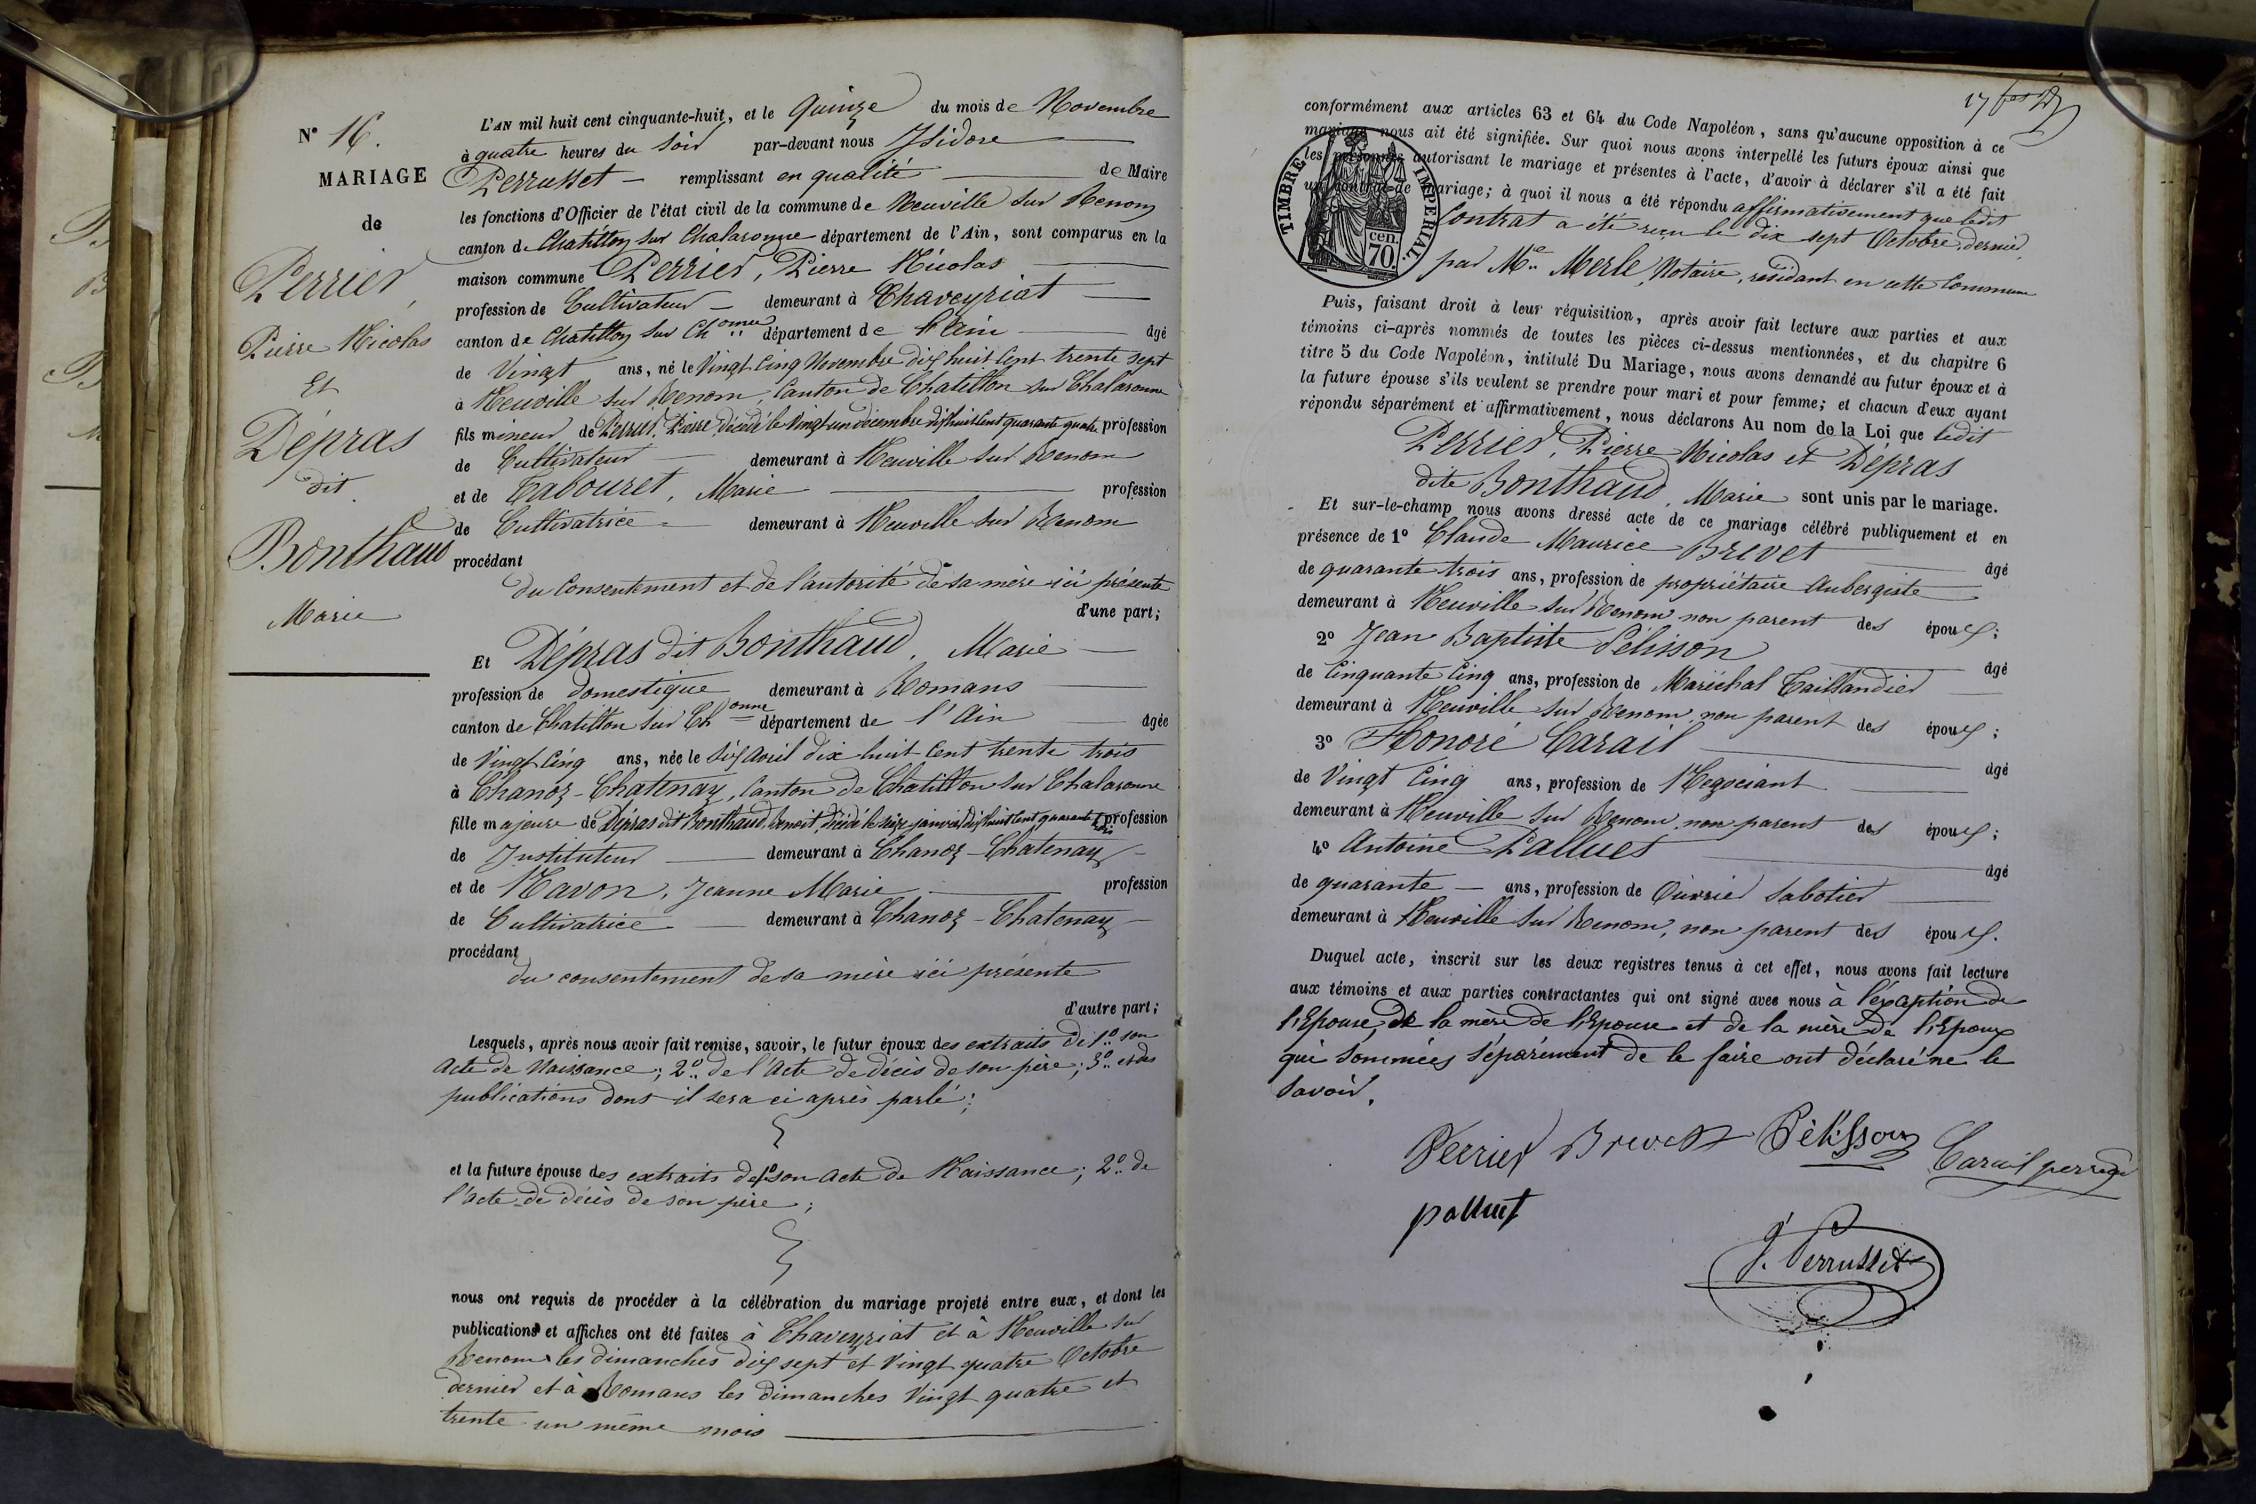 N° 16.
MARIAGE
de
Perrier,
Pierre Nicolas
Et
Dépras
dit
Bonthaud
Marie
L'AN mil huit cent cinquante-huit, et le Quinze du mois de Novembre
à quatre heures du Soir par-devant nous Isidore
Perrusset remplissant en qualité de Maire
les fonctions d'Officier de l'état civil de la commune de Neuville sur Renom
canton de Chatillon sur Chalaronne département de l'Ain, sont comparus en la
maison commune Perrier, Pierre Nicolas
profession de Cultivateur demeurant à Chaveyriat
canton de Chatillon sur Ch onne département de l'Ain âgé
de Vingt ans, né le Vingt Cinq Novembre dix huit Cent trente sept
à Neuville sur Renom, Canton de Chatillon sur Chalaronne
fils mineur de Perrier, Pierre, décédé le Vingt un décembre dix huit Cent quarante quatre profession
de Cultivateur demeurant à Neuville sur Renom
et de Tabouret, Marie profession
de Cultivatrice demeurant à Neuville sur Renom
procédant
du Consentement et de l'autorité de sa mère ici présente
d'une part;
Et Dépras dit Bonthaud, Marie
profession de domestique demeurant à Romans
canton de Chatillon sur Ch onne département de l'Ain âgée
de Vingt Cinq ans, née le Six Avril dix huit Cent trente trois
à Chanoz-Chatenay, Canton de Chatillon sur Chalaronne
fille majeure de Dépras dit Bonthaud, Benoit, décédé le seize janvier dix huit Cent quarante profession
de Instituteur demeurant à Chanoz-Chatenay
et de Navon, Jeanne Marie profession
de Cultivatrice demeurant à Chanoz-Chatenay
procédant
du consentement de sa mère ici présente
d'autre part;
Lesquels, après nous avoir fait remise, savoir, le futur époux des extraits de 1° son
Acte de Naissance; 2° de l'Acte de décès de son père; 3° et des
publications dont il sera ci après parlé;
et la future épouse des extraits de 1° son acte de Naissance; 2° de
l'acte de décès de son père;
nous ont requis de procéder à la célébration du mariage projeté entre eux, et dont les
publications et affiches ont été faites à Chaveyriat et à Neuville sur
Renom les dimanches dix sept et Vingt quatre Octobre
dernier et à Romans les dimanches Vingt quatre et
trente un même mois
conformément aux articles 63 et 64 du Code Napoléon, sans qu'aucune opposition à ce
mariage nous ait été signifiée. Sur quoi nous avons interpellé les futurs époux ainsi que
les personnes autorisant le mariage et présentes à l'acte, d'avoir à déclarer s'il a été fait
un contrat de mariage; à quoi il nous a été répondu affirmativement que ledit
Contrat a été reçu le dix sept Octobre dernier,
par Me Merle, Notaire, résidant en cette Commune
TIMBRE IMPERIAL.
70 cen.
Puis, faisant droit à leur réquisition, après avoir fait lecture aux parties et aux
témoins ci-après nommés de toutes les pièces ci-dessus mentionnées, et du chapitre 6
titre 5 du Code Napoléon, intitulé Du Mariage, nous avons demandé au futur époux et à
la future épouse s'ils veulent se prendre pour mari et pour femme; et chacun d'eux ayant
répondu séparément et affirmativement, nous déclarons Au nom de la Loi que ledit
Perrier, Pierre Nicolas et Dépras
dite Bonthaud, Marie sont unis par le mariage.
Et sur-le-champ nous avons dressé acte de ce mariage célébré publiquement et en
présence de 1° Claude Maurice Brevet âgé
de quarante trois ans, profession de propriétaire Aubergiste
demeurant à Neuville sur Renom non parent des époux;
2° Jean Baptiste Pélisson âgé
de Cinquante Cinq ans, profession de Maréchal Taillandier
demeurant à Neuville sur Renom non parent des époux;
3° Honoré Carail âgé
de Vingt Cinq ans, profession de Negociant
demeurant à Neuville sur Renom non parent des époux;
4° Antoine Palluet âgé
de quarante ans, profession de Ouvrier Sabotier
demeurant à Neuville sur Renom, non parent des époux.
Duquel acte, inscrit sur les deux registres tenus à cet effet, nous avons fait lecture
aux témoins et aux parties contractantes qui ont signé avec nous à l'éxaption de
l'Epouse, de la mère de l'Epouse et de la mère de l'Epoux
qui sommées séparément de le faire ont déclaré ne le
savoir.
Perrier Brevet Pélisson Carail
palluet
J. Perrusset